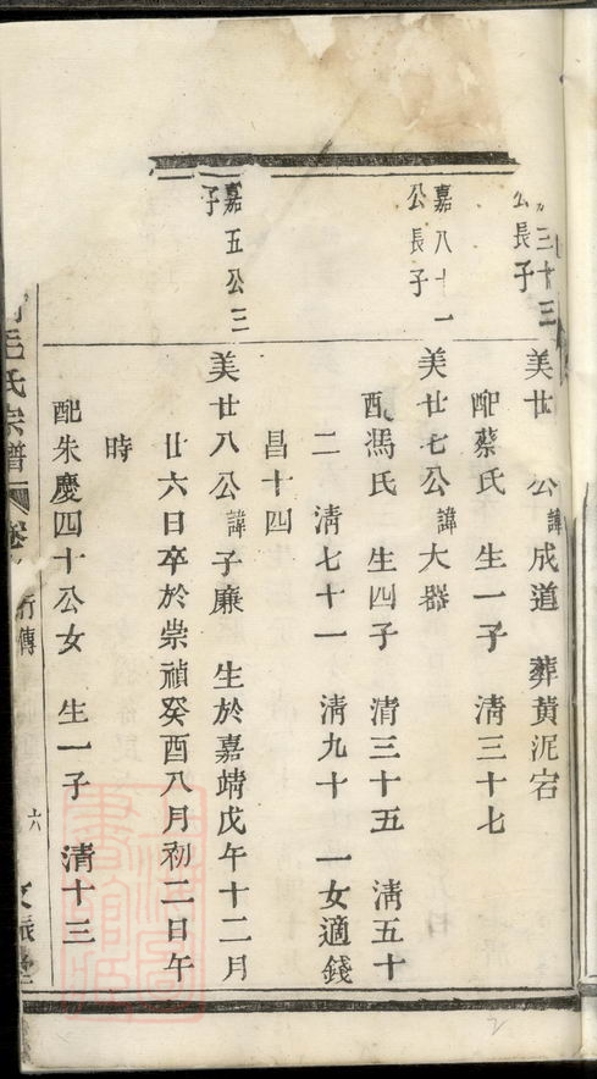 三十三
公長子
美廿 公諱成道 葬黄泥宕
配蔡氏 生一子 淸三十七
嘉八十一
公長子
美廿七公諱大器
配馮氏 生四子 淸三十五 淸五十
二 淸七十一 淸九十 一女適錢
昌十四
嘉五公三
子
美廿八公諱子廉 生於嘉靖戊午十二月
廿六日卒於崇禎癸酉八月初二日午
時
配朱慶四十公女 生一子 淸十三
毛氏宗譜 卷 行傳 六